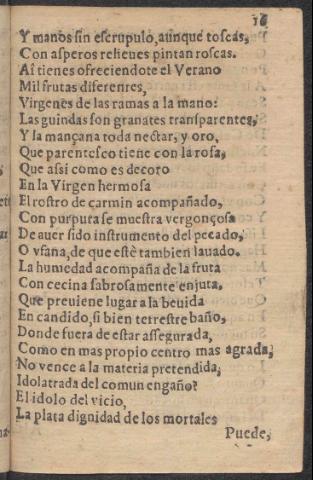 16
Y manos sin escrupulo, aunque toscas,
Con asperos relieues pintan roscas.
Aì tienes ofreciendote el Verano
Mil frutas diferenres,
Virgenes de las ramas a la mano:
Las guindas son granates transparentes,
Y la mançana toda nectar, y oro,
Que parentesco tiene con la rosa,
Que assi como es decoro
En la Virgen hermosa
El rostro de carmin acompañado,
Con purpura se muestra vergonçosa
De auer sido instrumento del pecado,
O vfana, de que estè tambien lauado.
La humedad acompaña de la fruta
Con cecina sabrosamente enjuta,
Que preuiene lugar a la beuida
En candido, si bien terrestre baño,
Donde fuera de estar assegurada,
Como en mas propio centro mas agrada,
No vence a la materia pretendida,
Idolatrada del comun engaño?
El idolo del vicio,
La plata dignidad de los mortales
Puede,